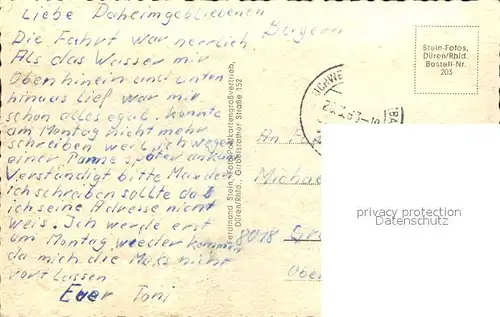 Liebe Daheimgebliebenen
Die Fahrt war herrlich.
Als das Wasser mir
Oben hinein und unten
hinaus lief war mir
schon alles egal. konnte
am Montag nicht mehr
schreiben weil ich wegen
einer Panne später ankam
Verständigt bitte
ich schreiben sollte da ich
seine Adresse nicht
weis. Ich werde erst
am Montag wieder kommen
da mich die nicht
vort lassen
Euer Toni
Bayern
Ferdinand Stein, Foto-Postkartengroßvertrieb,
Düren/Rhld., Girbelsrather Straße 152
Stein-Fotos,
Düren/Rhld.
Bestell-Nr.
203
An
Micha
8018
Ober
privacy protection
Datenschutz